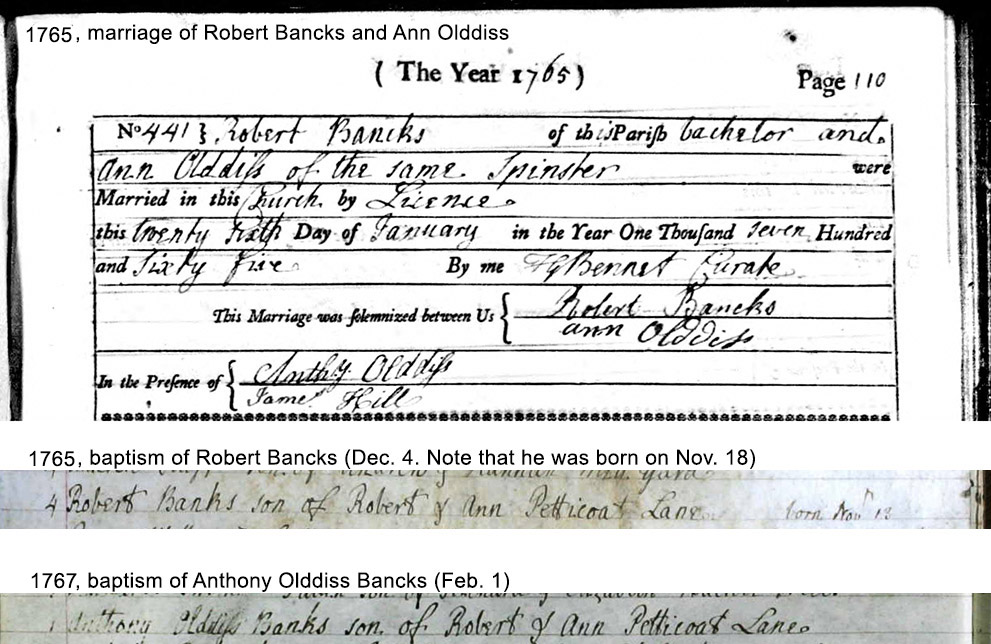 1765, marriage of Robert Bancks and Ann Olddiss
( The Year 1765)
Page 110
No 441 } Robert Bancks of this Parish bachelor and
Ann Olddiss of the same Spinster were
Married in this Church by Licence
this twenty sixth Day of January in the Year One Thousand seven Hundred
and Sixty five By me Bennet Curate
This Marriage was solemnized between Us { Robert Bancks
ann Olddiss
In the Presence of { Anthy Olddiss
James Hill
1765, baptism of Robert Bancks (Dec. 4. Note that he was born on Nov. 18)
4 Robert Banks son of Robert & Ann Petticoat Lane born Novr 18
1767, baptism of Anthony Olddiss Bancks (Feb. 1)
1 Anthony Olddiss Banks son of Robert & Ann Petticoat Lane